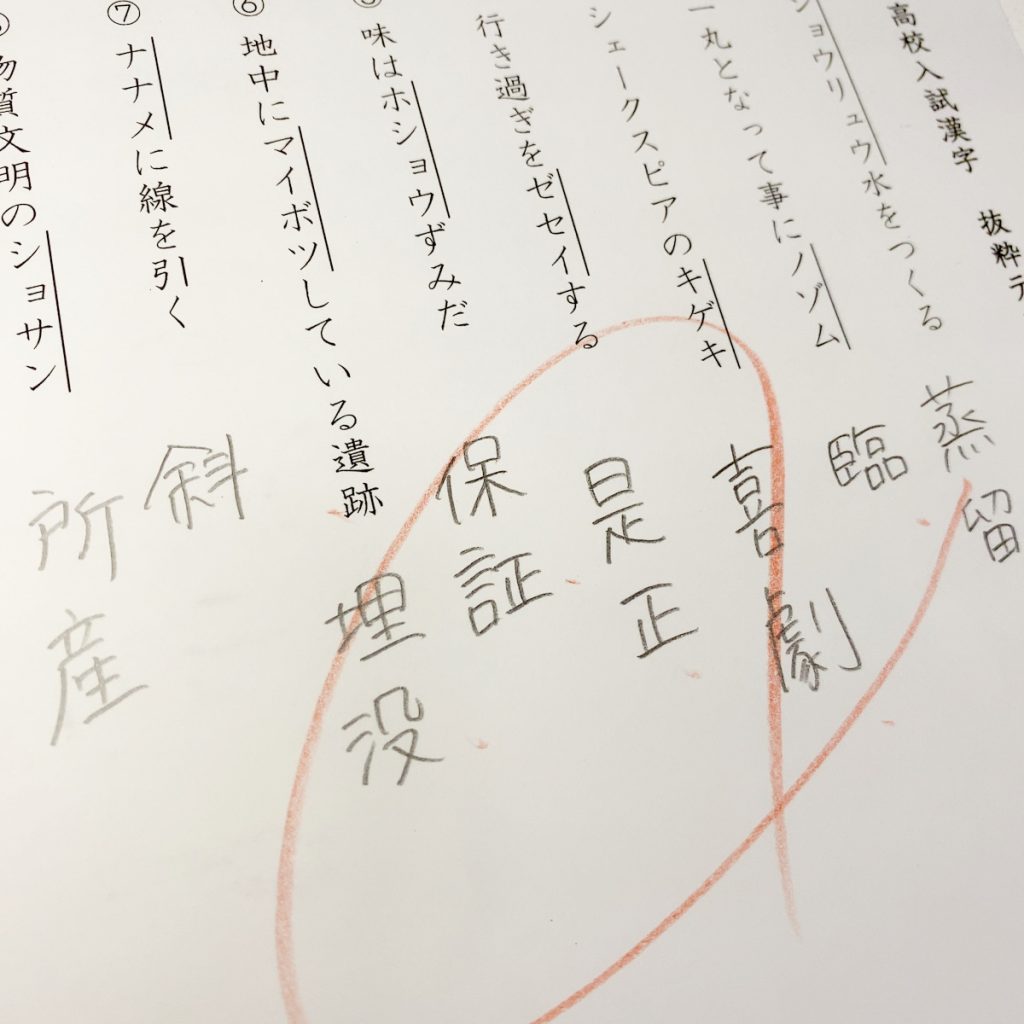 高校入試漢字 抜粋テ
ショウリュウ水をつくる
蒸留
一丸となって事にノゾム
臨
シェークスピアのキゲキ
喜劇
行き過ぎをゼセイする
是正
味はホショウずみだ
保証
⑥ 地中にマイボツしている遺跡
埋没
⑦ ナナメに線を引く
斜
物質文明のショサン
所産